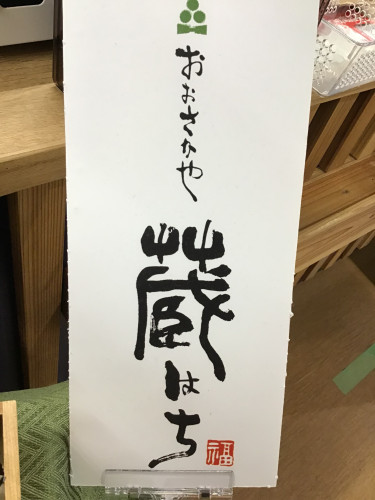 おおさかや
蔵はち
福